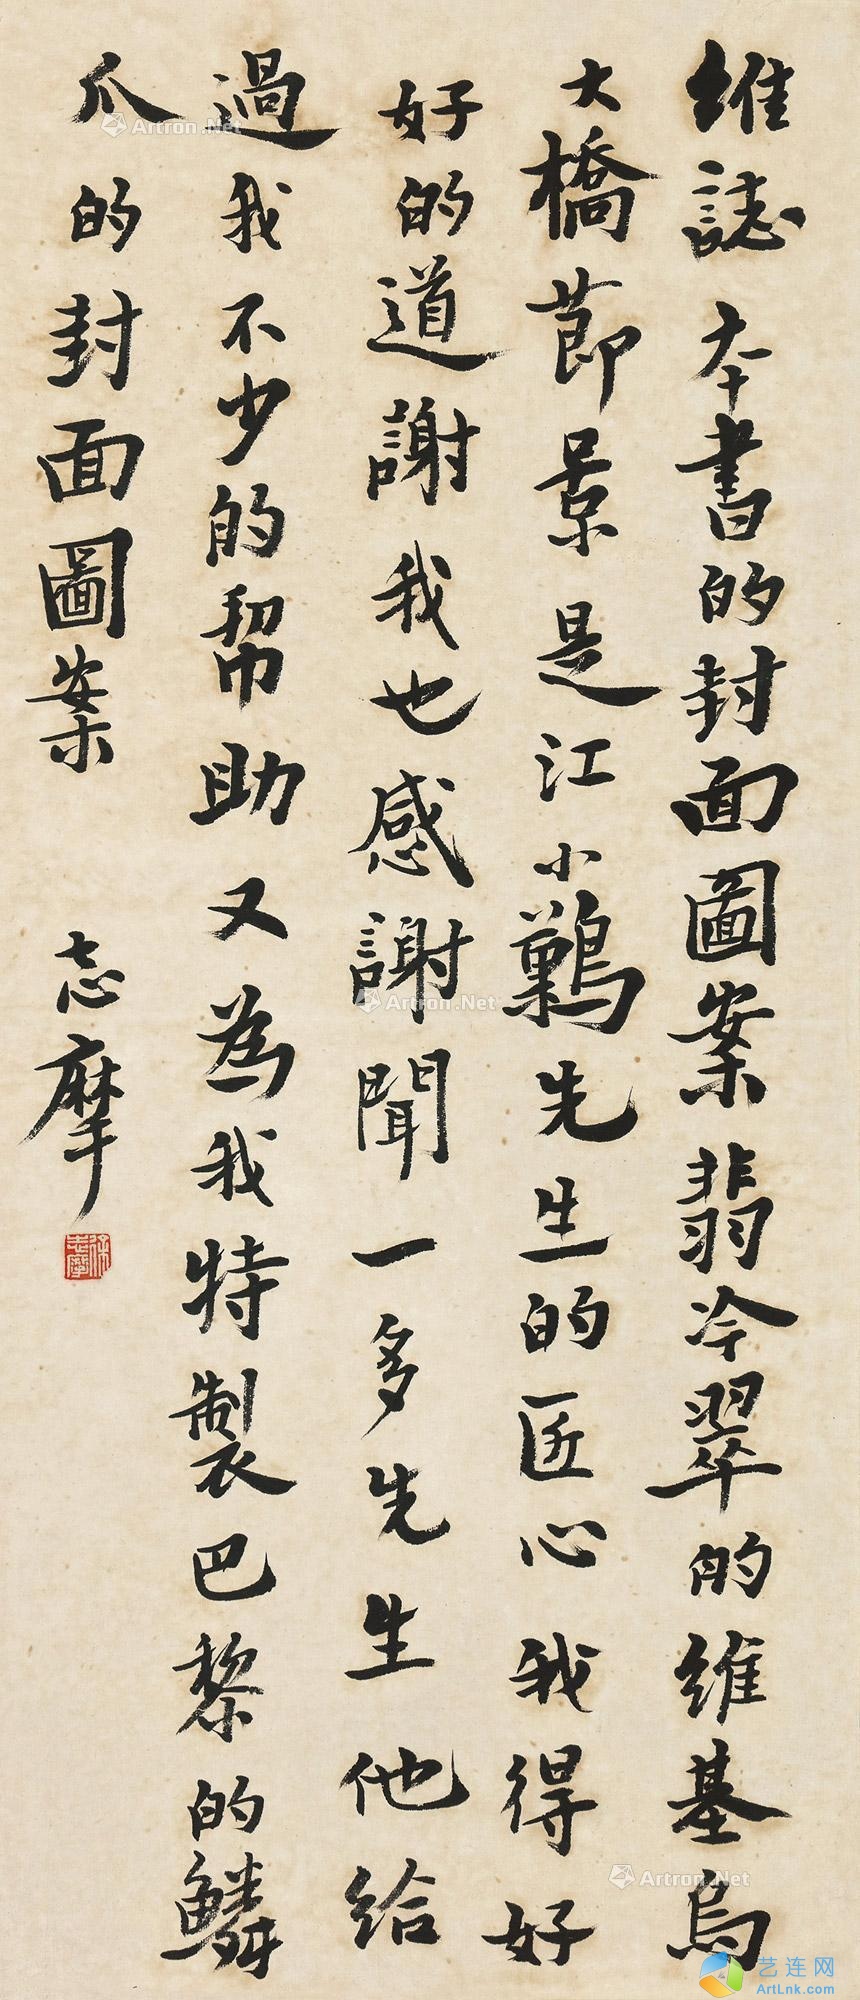 維誌 本書的封面圖案翡冷翠的維基烏
大橋節景是江小鶼先生的匠心我得好
好的道謝我也感謝聞一多先生他給
過我不少的幫助又為我特製巴黎的鱗
爪的封面圖案
志摩
徐志摩
Artron.Net
Artron.Net
Artron.Net
Artron.Net
艺连网
ArtLink.com